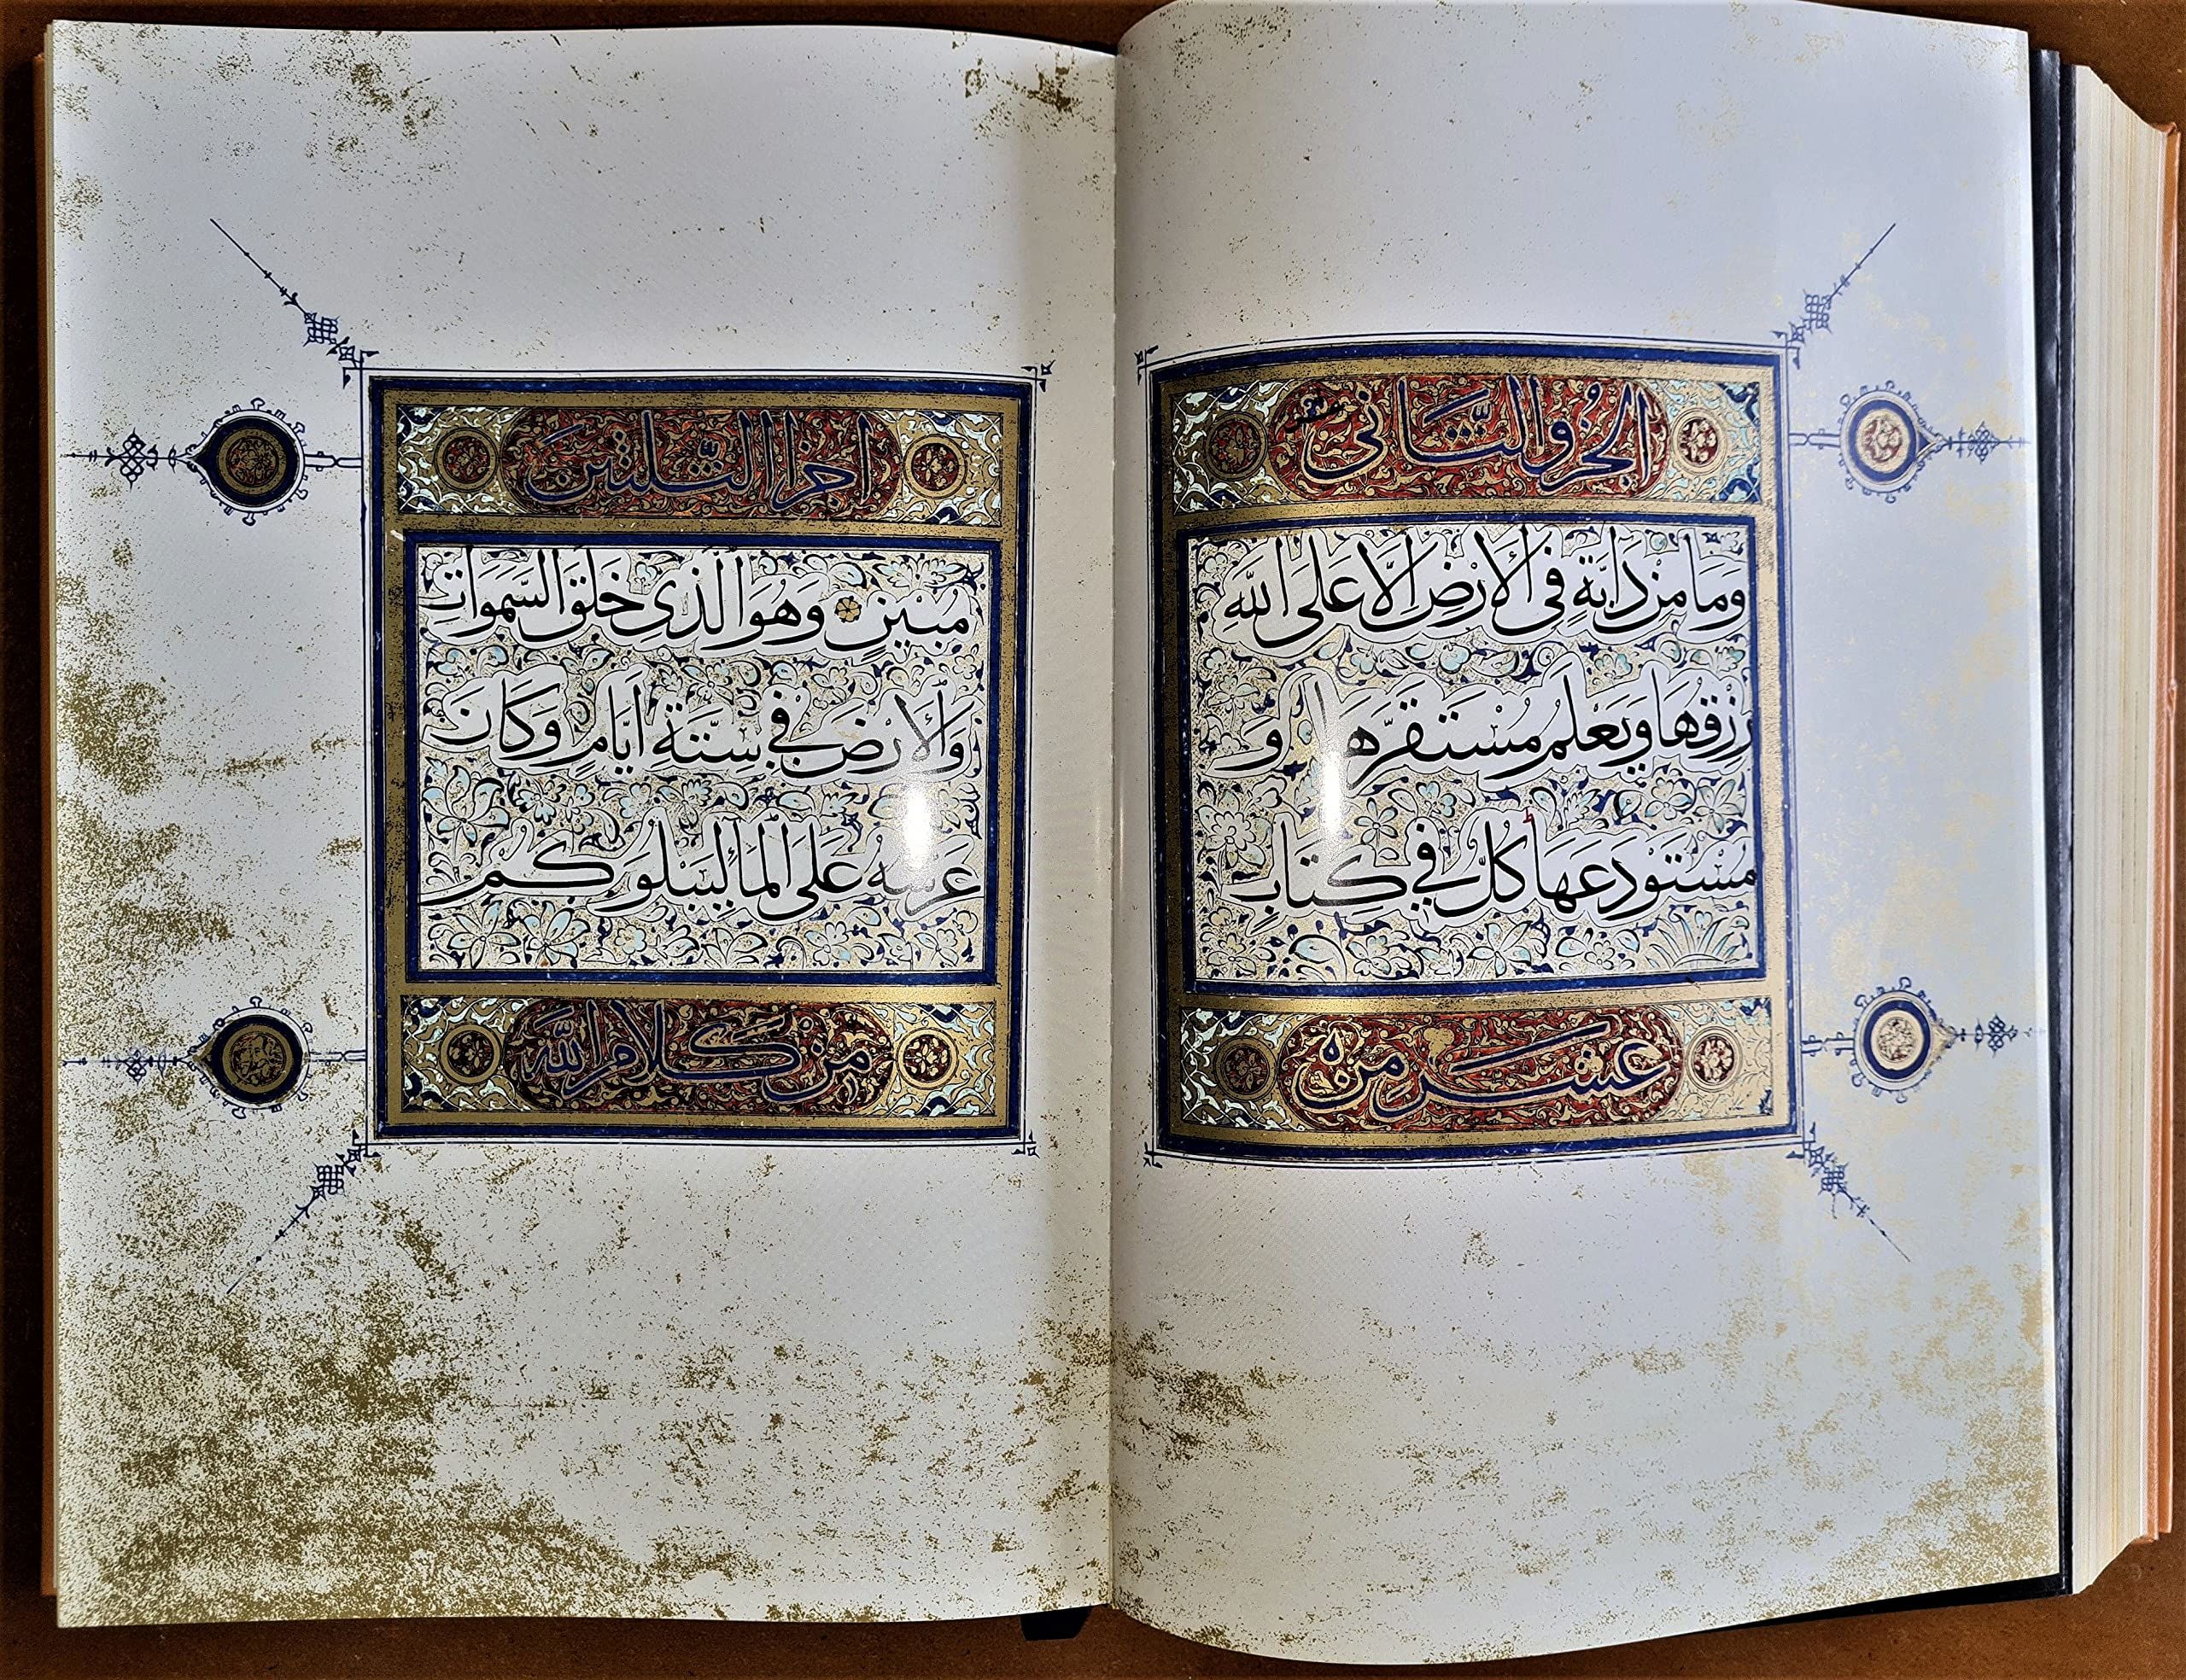 الجزؤ الثاني
وَمَا مِن دَابَّةٍ فِي الأَرْضِ إِلَّا عَلَى اللَّهِ
رِزْقُهَا وَيَعْلَمُ مُسْتَقَرَّهَا وَ
مُسْتَوْدَعَهَا كُلٌّ فِي كِتَابٍ
عَشَرَ مِنْ
اجزا الثَّلثينَ
مُبِينٍ وَهُوَ الَّذِي خَلَقَ السَّمَوَاتِ
وَالأَرْضَ فِي سِتَّةِ أَيَّامٍ وَكَانَ
عَرْشُهُ عَلَى المَاءِ لِيَبْلُوَكُمْ
مِنْ كَلَامِ اللَّهِ